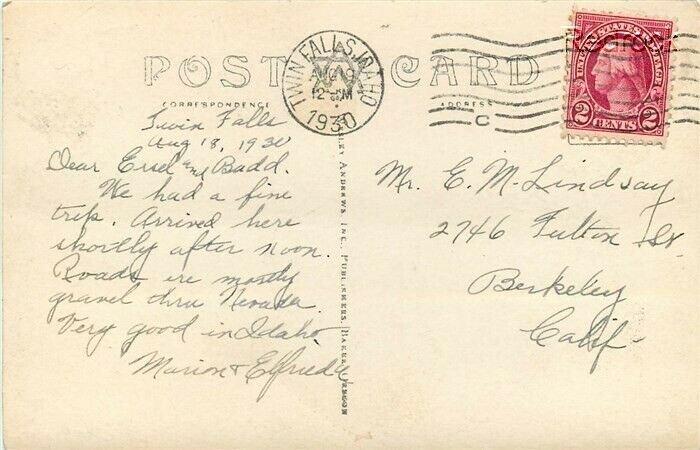 POST CARD
CORRESPONDENCE
ADDRESS
TWIN FALLS, IDAHO
AUG 19
12-M
1930
C
UNITED STATES POSTAGE
2 CENTS 2
Twin Falls
Aug 18, 1930
Dear Ersel and Badd.
We had a fine
trip. Arrived here
shortly after noon.
Roads are mostly
gravel thru Nevada.
Very good in Idaho.
Marion & Elfrieda
ANDREWS, INC., PUBLISHERS, BAKER, OREGON
Mr. E. M. Lindsay
2746 Fulton St.
Berkeley
Calif.